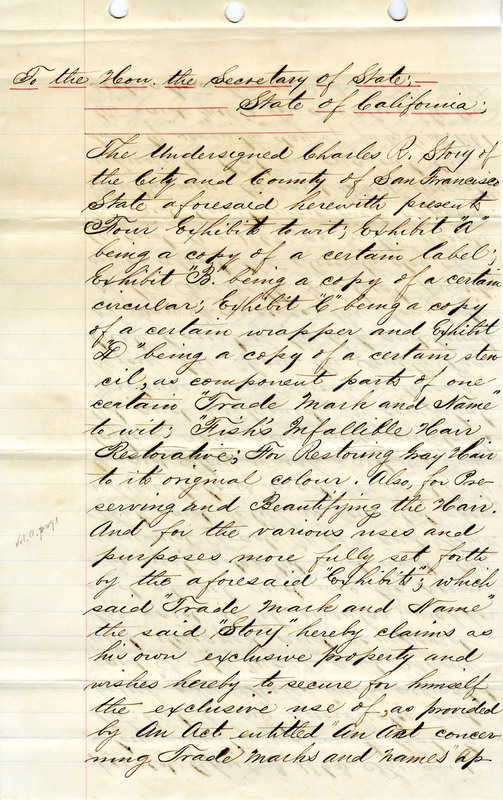 To the Hon. the Secretary of State;—
State of California;
The Undersigned Charles R. Story of
the City and County of San Francisco
State aforesaid herewith presents
Four Exhibits to wit; Exhibit "A"
being a copy of a certain label;
Exhibit "B." being a copy of a certain
circular; Exhibit "C" being a copy
of a certain wrapper and Exhibit
"D" being a copy of a certain sten-
cil, as component parts of one
certain "Trade Mark and Name"
to wit; Fish's Infallible Hair
Restorative; For Restoring Gray Hair
to its original colour. Also, for Pre-
serving and Beautifying the Hair.
And for the various uses and
purposes more fully set forth
by the aforesaid "Exhibits"; which
said "Trade Mark and Name"
the said "Story" hereby claims as
his own exclusive property and
wishes hereby to secure for himself
the exclusive use of, as provided
by An Act entitled "An Act concer-
ning Trade Marks and Names" ap